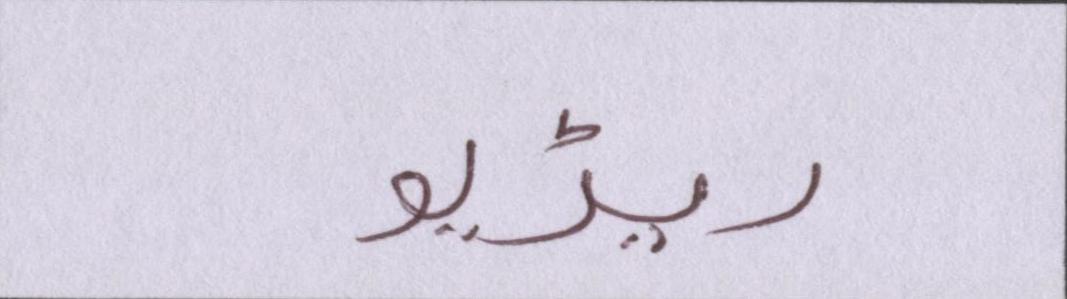 ریڈیو